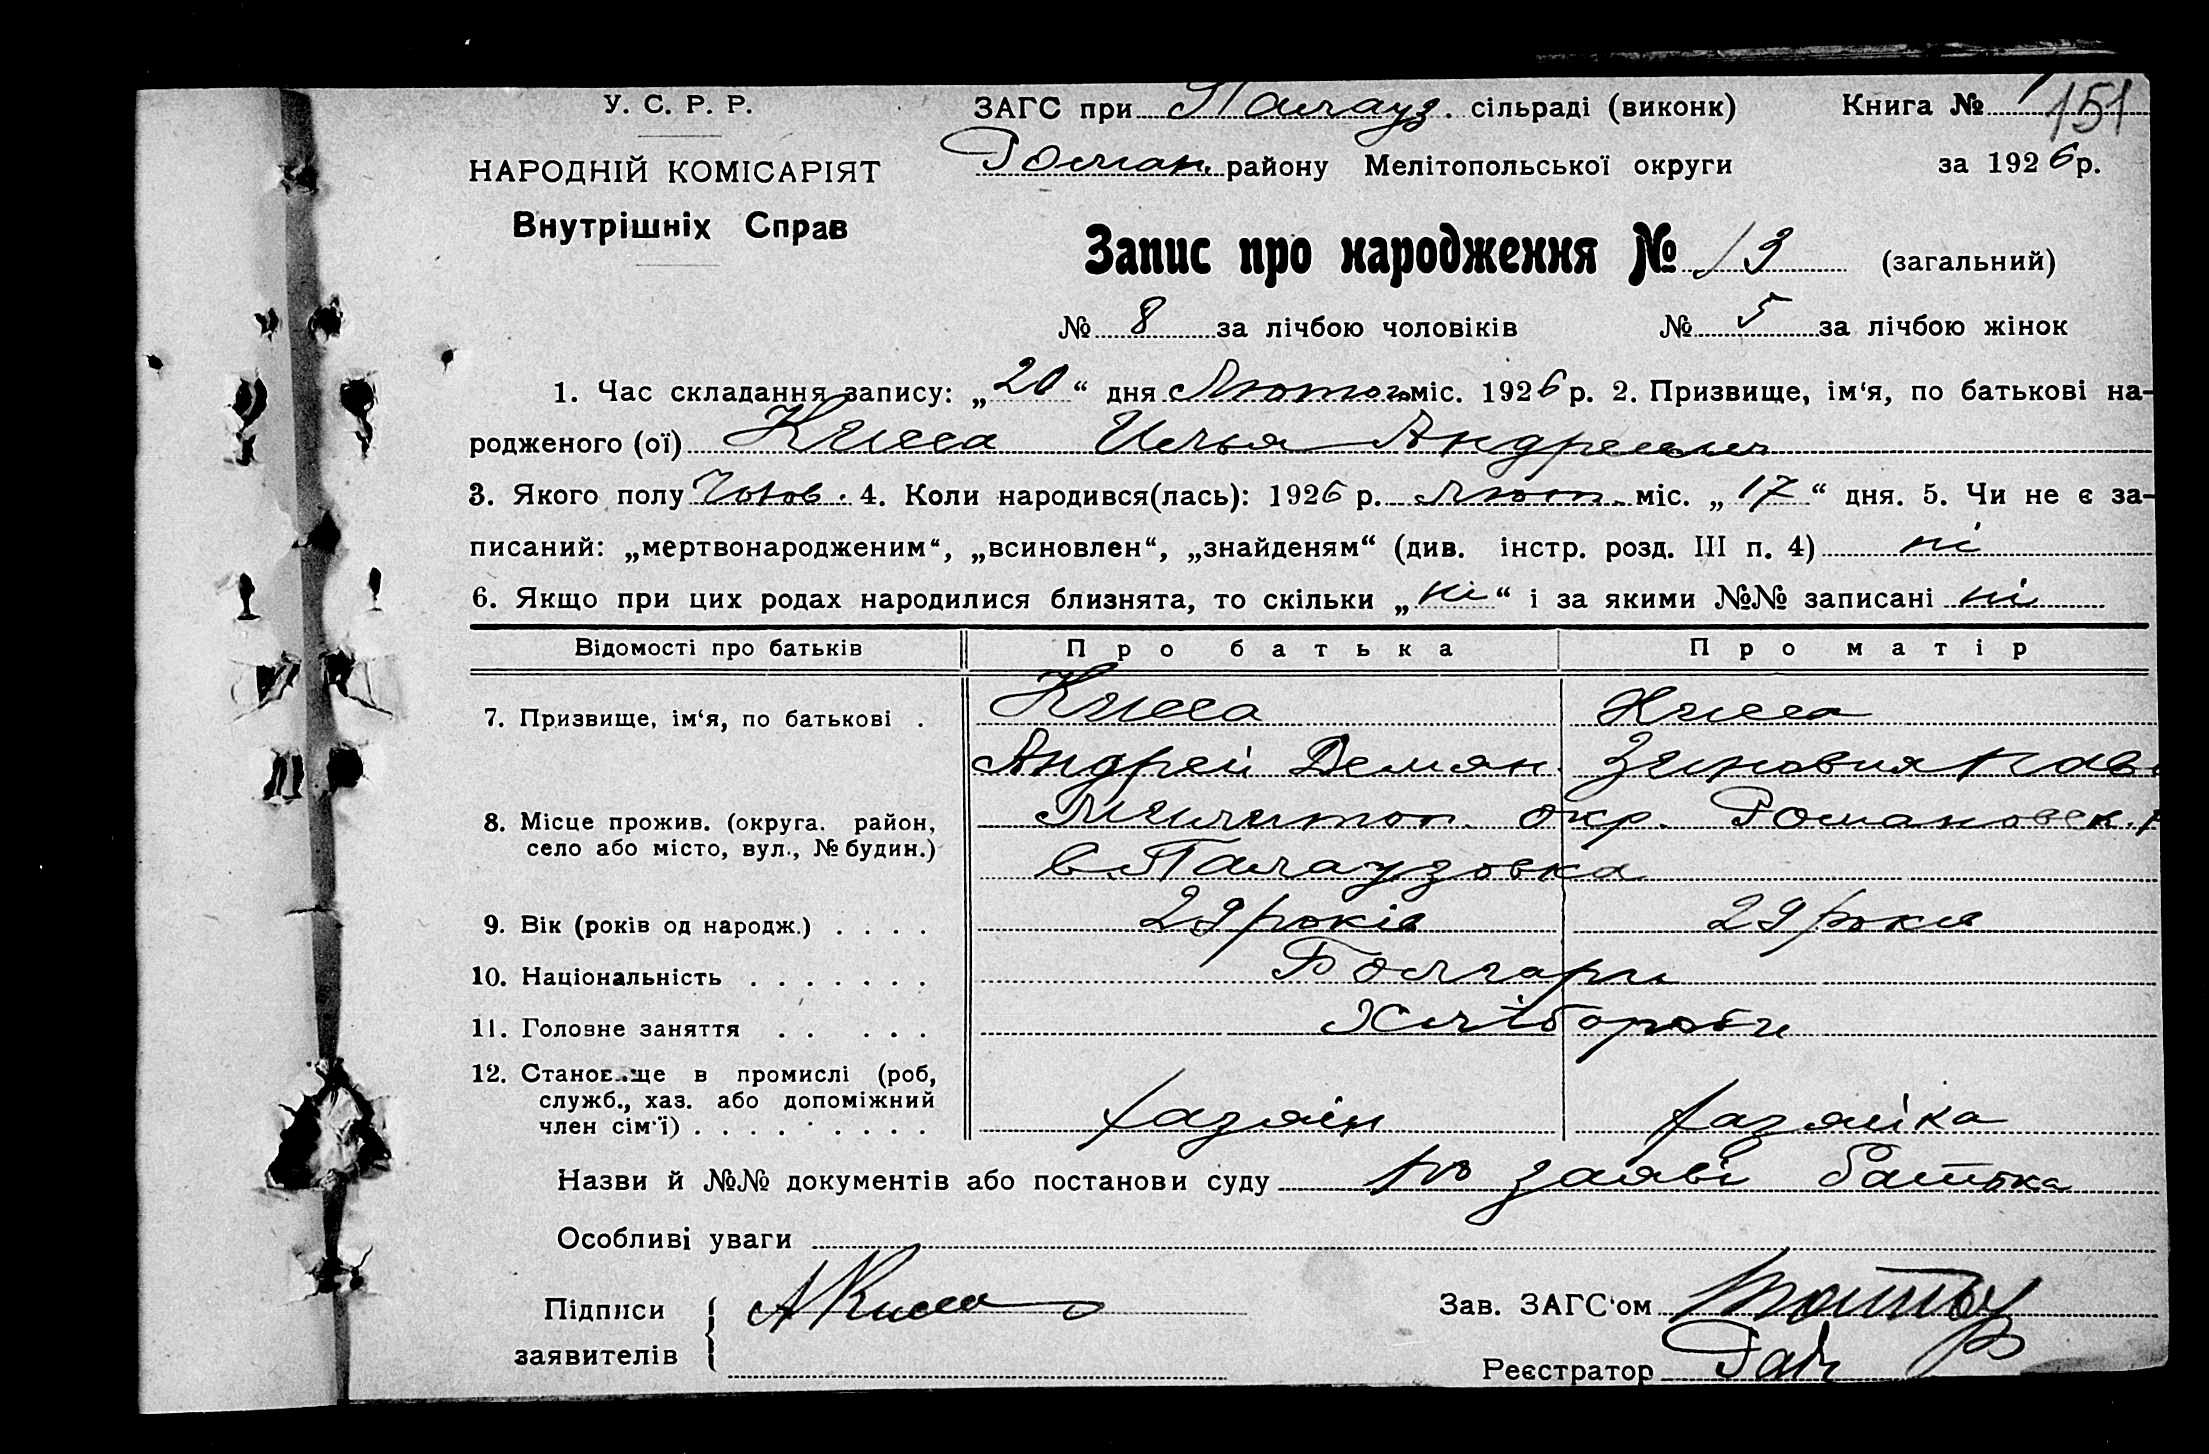 У. С. Р. Р.
НАРОДНІЙ КОМІСАРІЯТ
Внутрішніх Справ
ЗАГС при Палауз. сільраді (виконк) Книга № 151
Роман. району Мелітопольської округи за 1926 р.
Запис про народження № 13 (загальний)
№ 8 за лічбою чоловіків № 5 за лічбою жінок
1. Час складання запису: „20“ дня Лютого міс. 1926 р. 2. Призвище, ім‘я, по батькові на-
родженого (ої) Кисса Илья Андреевич
3. Якого полу Чолов. 4. Коли народився(лась): 1926 р. Лют. міс. „17“ дня. 5. Чи не є за-
писаний: „мертвонародженим“, „всиновлен“, „знайденям“ (див. інстр. розд. III п. 4) ні
6. Якщо при цих родах народилися близнята, то скільки „ні“ і за якими №№ записані ні
Відомості про батьків Про батька Про матір
7. Призвище, ім‘я, по батькові . Кисса Кисса
Андрей Демян. Зиновия Пав
8. Місце прожив. (округа, район, Мелитоп. окр. Романовск. р
село або місто, вул., № будин.) с. Палаузовка
9. Вік (років од народж.) . . . . 29 років 29 років
10. Національність . . . . . . . Болгари
11. Головне заняття . . . . . Хлібороби
12. Становище в промислі (роб,
служб., хаз. або допоміжний
член сім‘ї) . . . . . . . . . хазяїн хазяйка
Назви й №№ документів або постанови суду по заяві батька
Особливі уваги
Підписи А Кисса Зав. ЗАГС‘ом
заявителів Реєстратор